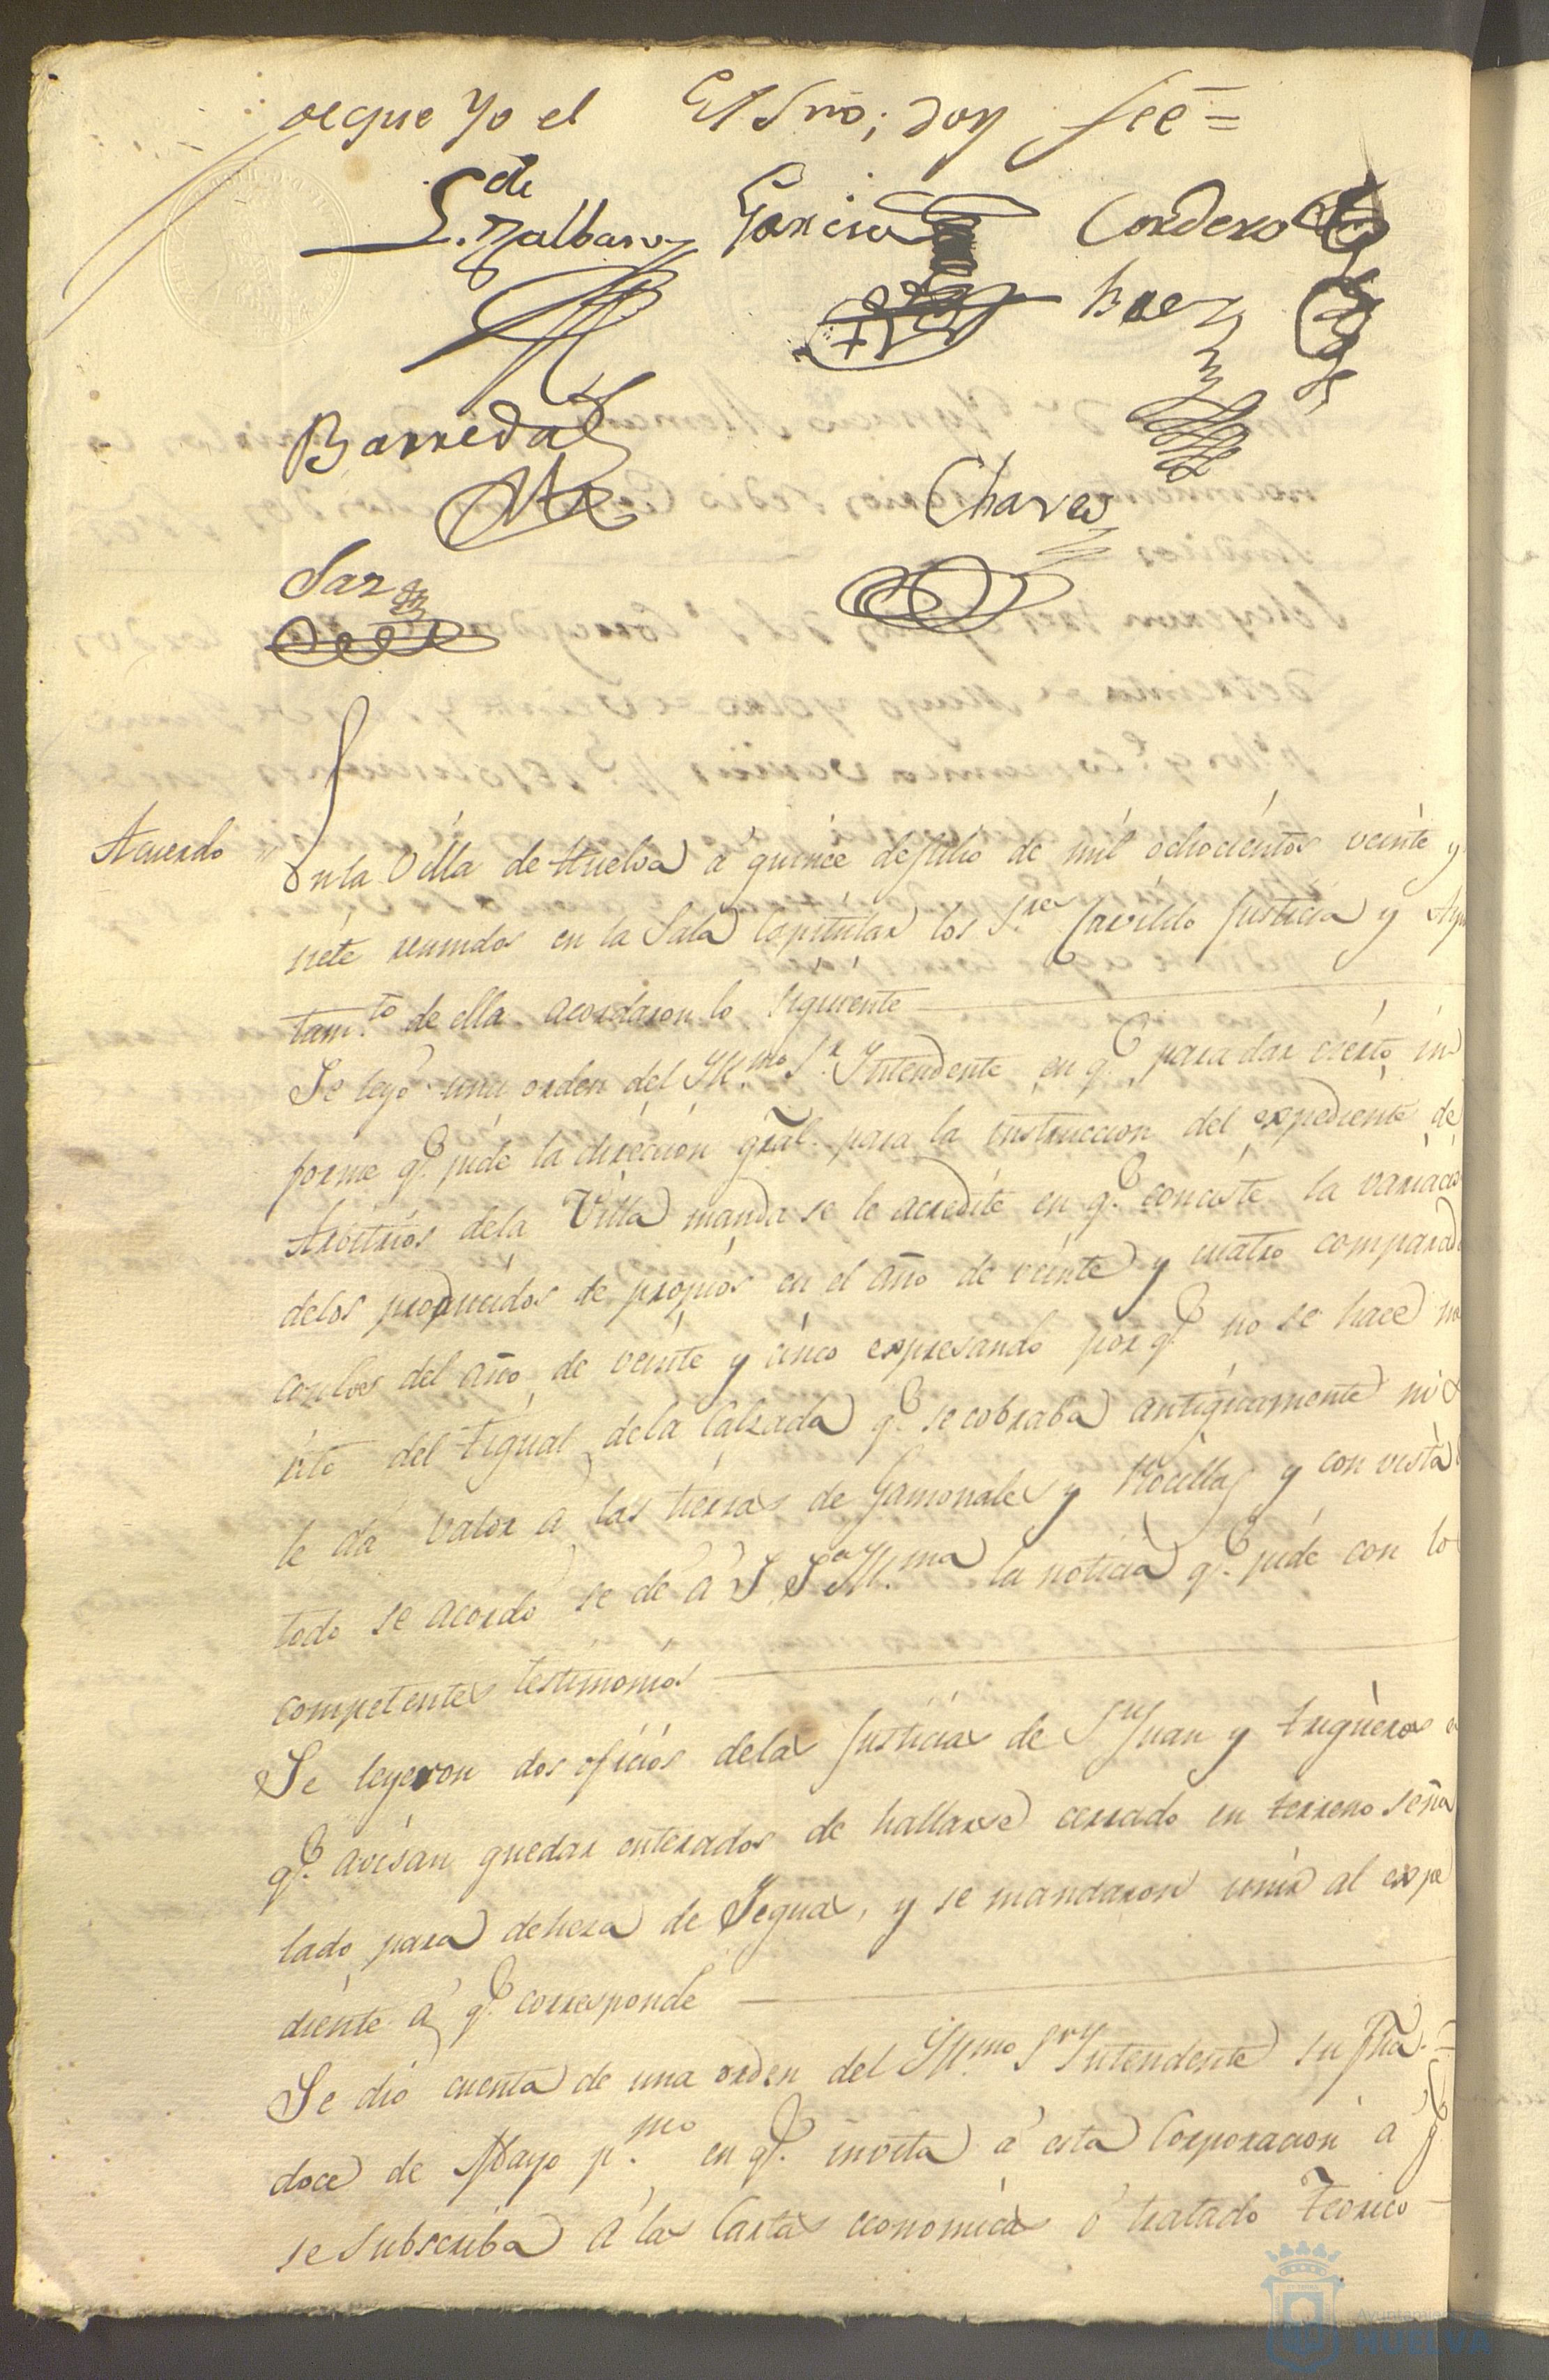 de que Yo el Essno; doy feé =
García Cordero
Baez
Barreda
Chaves
Saz
Acuerdo
En la Villa de Huelva á quince de Julio de mil ochocientos veinte y
siete reunidos en la Sala Capitular los S.res Cavildo Justicia y Ayun
tam.to de ella acordaron lo siguiente
Se leyó una orden del Yll.mo S.r Yntendente en q.e para dar cierto in
forme q.e pide la direccion gral. para la instruccion del expediente de
Arbitrios dela Villa manda se le acredite en q.e conciste la variacion
delos producidos de propios en el año de veinte y cuatro comparado
conlos del año de veinte y cinco expresando por q.e no se hace me
rito del tigual dela Calzada q.e se cobraba antiguamente ni se
le da valor a las tierras de Gamonales y Rocillas y con vista
todo se acordó se dé á S. S.a Yll.ma la noticia q.e pide con los
competentes testimonios
Se leyeron dos oficios delas Justicias de S.n Juan y trigueros en
q.e avisan quedar enterados de hallarse cerrado en terreno seña
lado para deheza de Yeguas, y se mandaron unir al expe
diente á q.e corresponde
Se dio cuenta de una orden del Yll.mo S.r Yntendente su fha.
doce de Mayo p.mo en q.e invita á esta Corporacion á q.e
se subscriba á las Cartas economicas ó tratado Teorico
Ayuntamiento
HUELVA